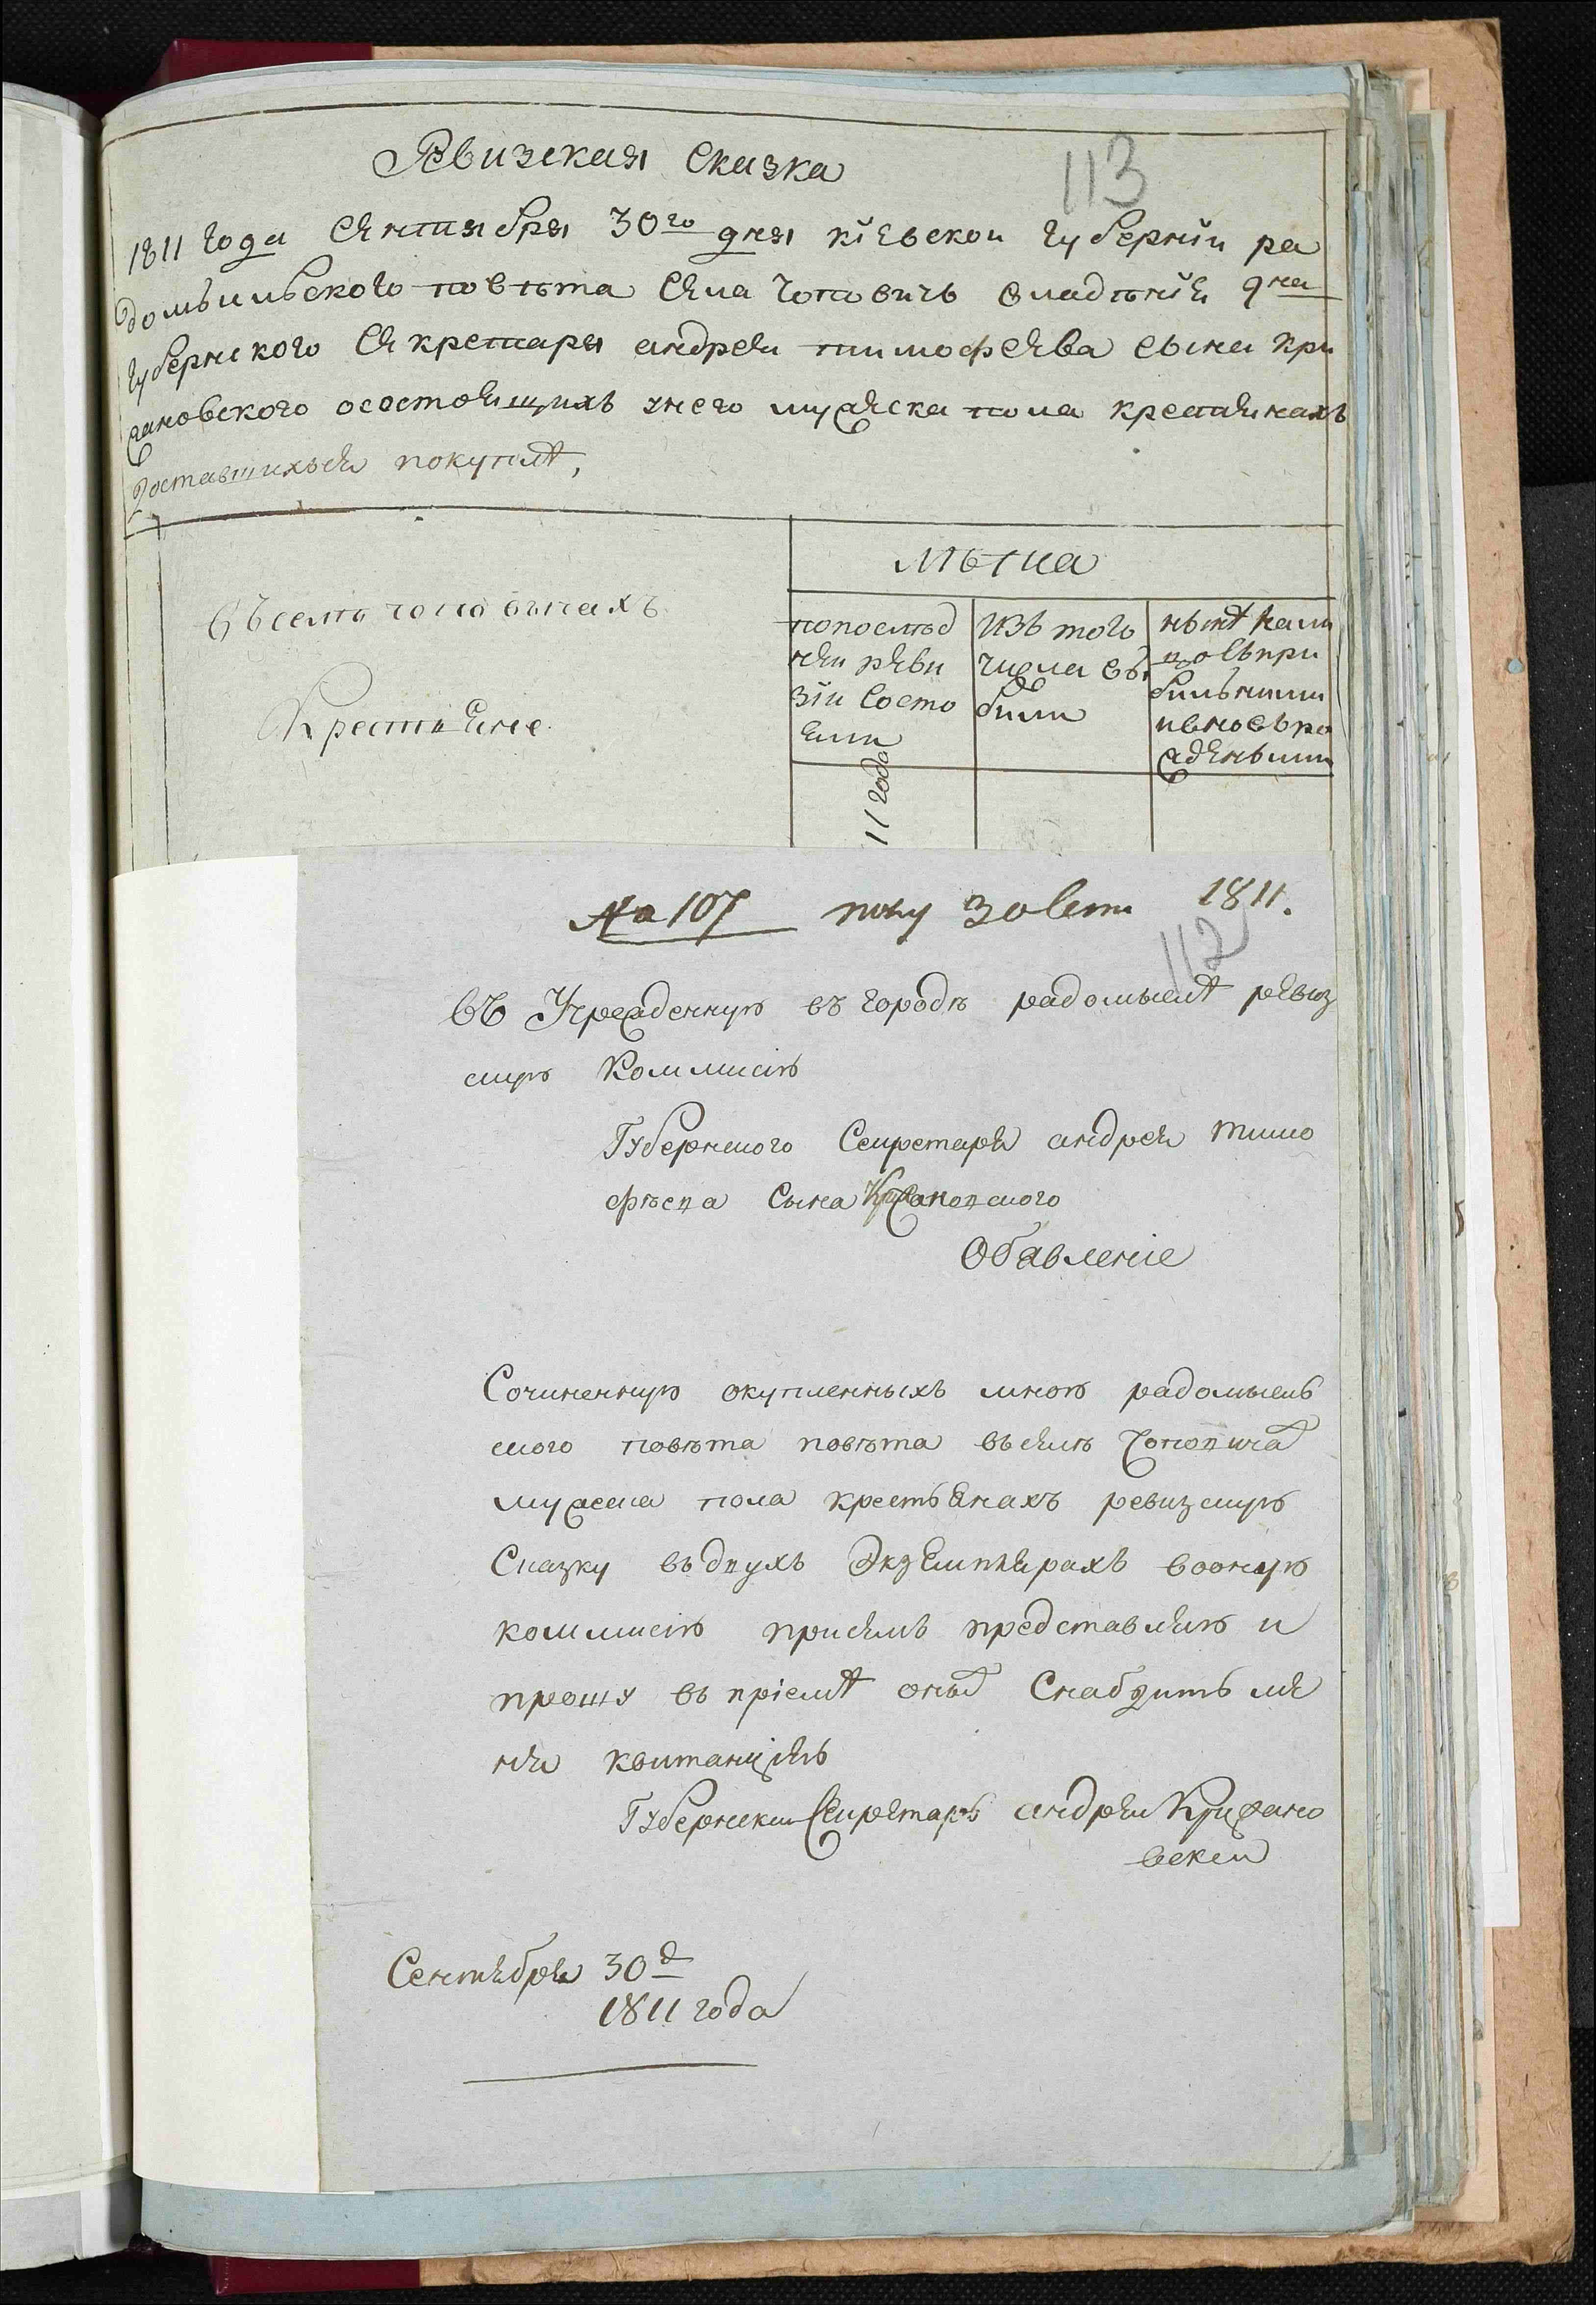 Ревизская Сказка
113
1811 года Сентября 30го дня кіевскои губерніи ра
домысльского повѣта Села Чоповичь владѣнія
губернского Секретаря андрея тимофеева сына кри
жановского осостоящихъ унего мужеска пола крестянахъ
доставшихся покупкѣ,
Крестяне
лѣта
попослѣд
неи реви
зіи состо
яли
изъ того
числа вы
были
нынѣ нали
цо съпри
былыми
ивновьро
ждеными
11 года
№ 107 полу 30 Сент 1811.
112
въ Учрежденную въ городѣ радомыслѣ ревиз
скую Коммисію
Губернского Секретаря андрея тимо
фѣева Сына Крижановского
Обавленіе
Сочиненную окупленныхъ мною радомысль
ского повѣта повѣта въселѣ Чоповича
мужеска пола крестьянахъ ревизскую
Сказку въдвухъ Экземплярахъ вооную
коммисію присемъ представляю и
прошу въ пріемѣ оныя Снабдить ме
ня квитанціею
Губернски Секретарь андреи Крижано
вскеи
Сентября 30д
1811 года